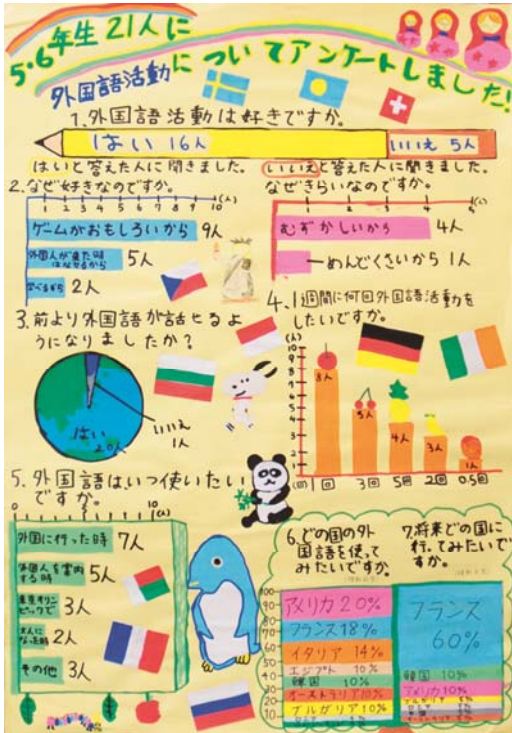 5・6年生21人に
外国語活動についてアンケートしました!
1.外国語活動は好きですか。
はい 16人
いいえ 5人
はいと答えた人に聞きました。
2.なぜ好きなのですか。
1 2 3 4 5 6 7 8 9 10(人)
ゲームがおもしろいから 9人
5人
2人
いいえと答えた人に聞きました。
なぜきらいなのですか。
むずかしいから 4人
めんどくさいから 1人
3.前より外国語が話せるよ
うになりましたか?
はい
20人
いいえ
1人
4.1週間に何回外国語活動を
したいですか。
(人)
10
9
8
7
6
5
4
3
2
1
8人
5人
4人
3人
1人
(回) 1回 3回 5回 2回 0.5回
5.外国語はいつ使いたい
ですか。
0 5 10(人)
外国に行った時 7人
外国人を案内
する時 5人
東京オリン
ピックで 3人
大人に
なった時 2人
その他 3人
6.どの国の外
国語を使って
みたいですか。
100
90
80
70
60
50
40
30
20
10
アメリカ 20%
フランス 18%
イタリア 14%
エジプト 10%
韓国 10%
オーストラリア 10%
ブルガリア 10%
7.将来どの国に
行ってみたいで
すか。
フランス
60%
韓国 10%
アメリカ 10%